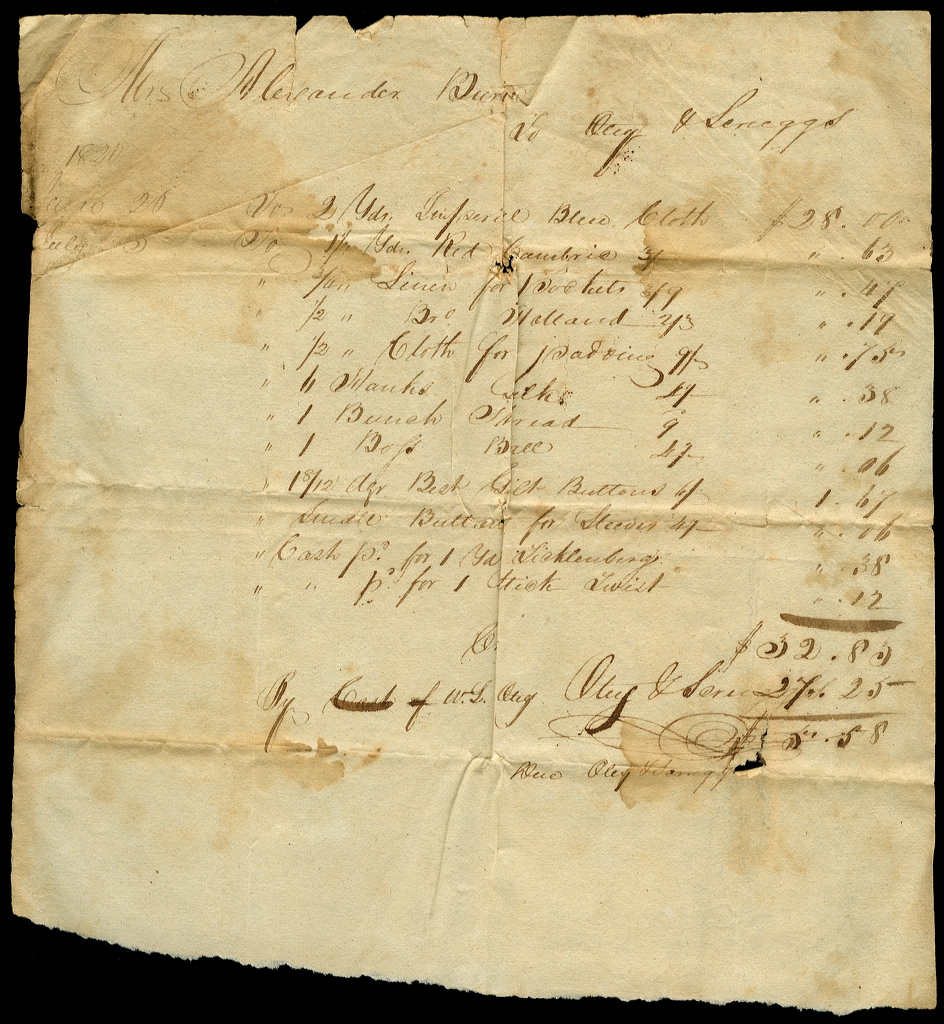 Mrs Alexander Burn
To Oley & Scruggs
1820
June 26 For 2 Yds. Imperial Blue Cloth $28.00
To 1/2 Yds. Red Cambric 3/ " .63
" 3/4 " Linen for Pockets 3/9 " .47
" 1/2 " Bro Holland 2/3 " .19
" 1/2 " Cloth for padding 9/ " .75
" 4 Hanks Silk " .38
" 1 Bunch Thread 9 " .12
" 1 Boss Ball " .06
" 1 8/12 doz Best Gilt Buttons 6/ 1.67
" Small Buttons for Sleeves " .06
" Cash pd for 1 Yd Ticklenberg " .38
" " pd for 1 Stick Twist " .12
$32.83
Cr.
By Cash of W. L. Oley 27.25
Oley & Scru
$5.58
Due Oley & Scrugg